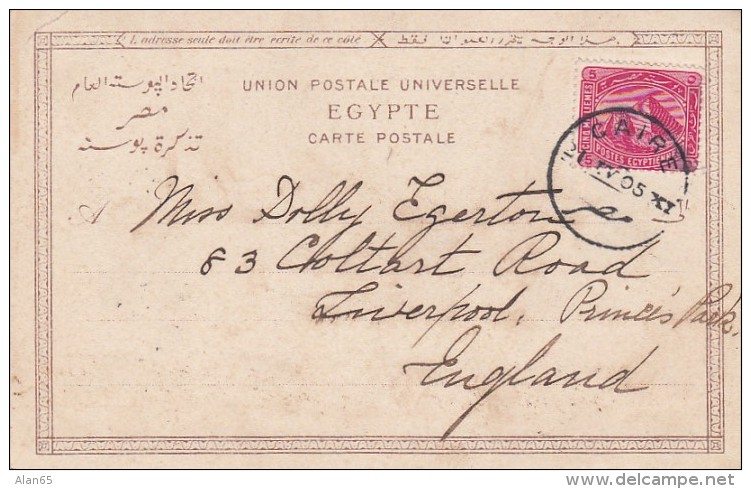 L'adresse seule doit être écrite de ce côté
هذا الوجه يحرر العنوان فقط
اتحاد البوسته العام
مصر
تذكرة بوسته
UNION POSTALE UNIVERSELLE
EGYPTE
CARTE POSTALE
5
POSTES EGYPTIENNES
5
CAIRE
IV 05 XI
A Miss Dolly Egerton
83 Coltart Road
Liverpool. Prince's Park.
England
Alan65
delcampe.net